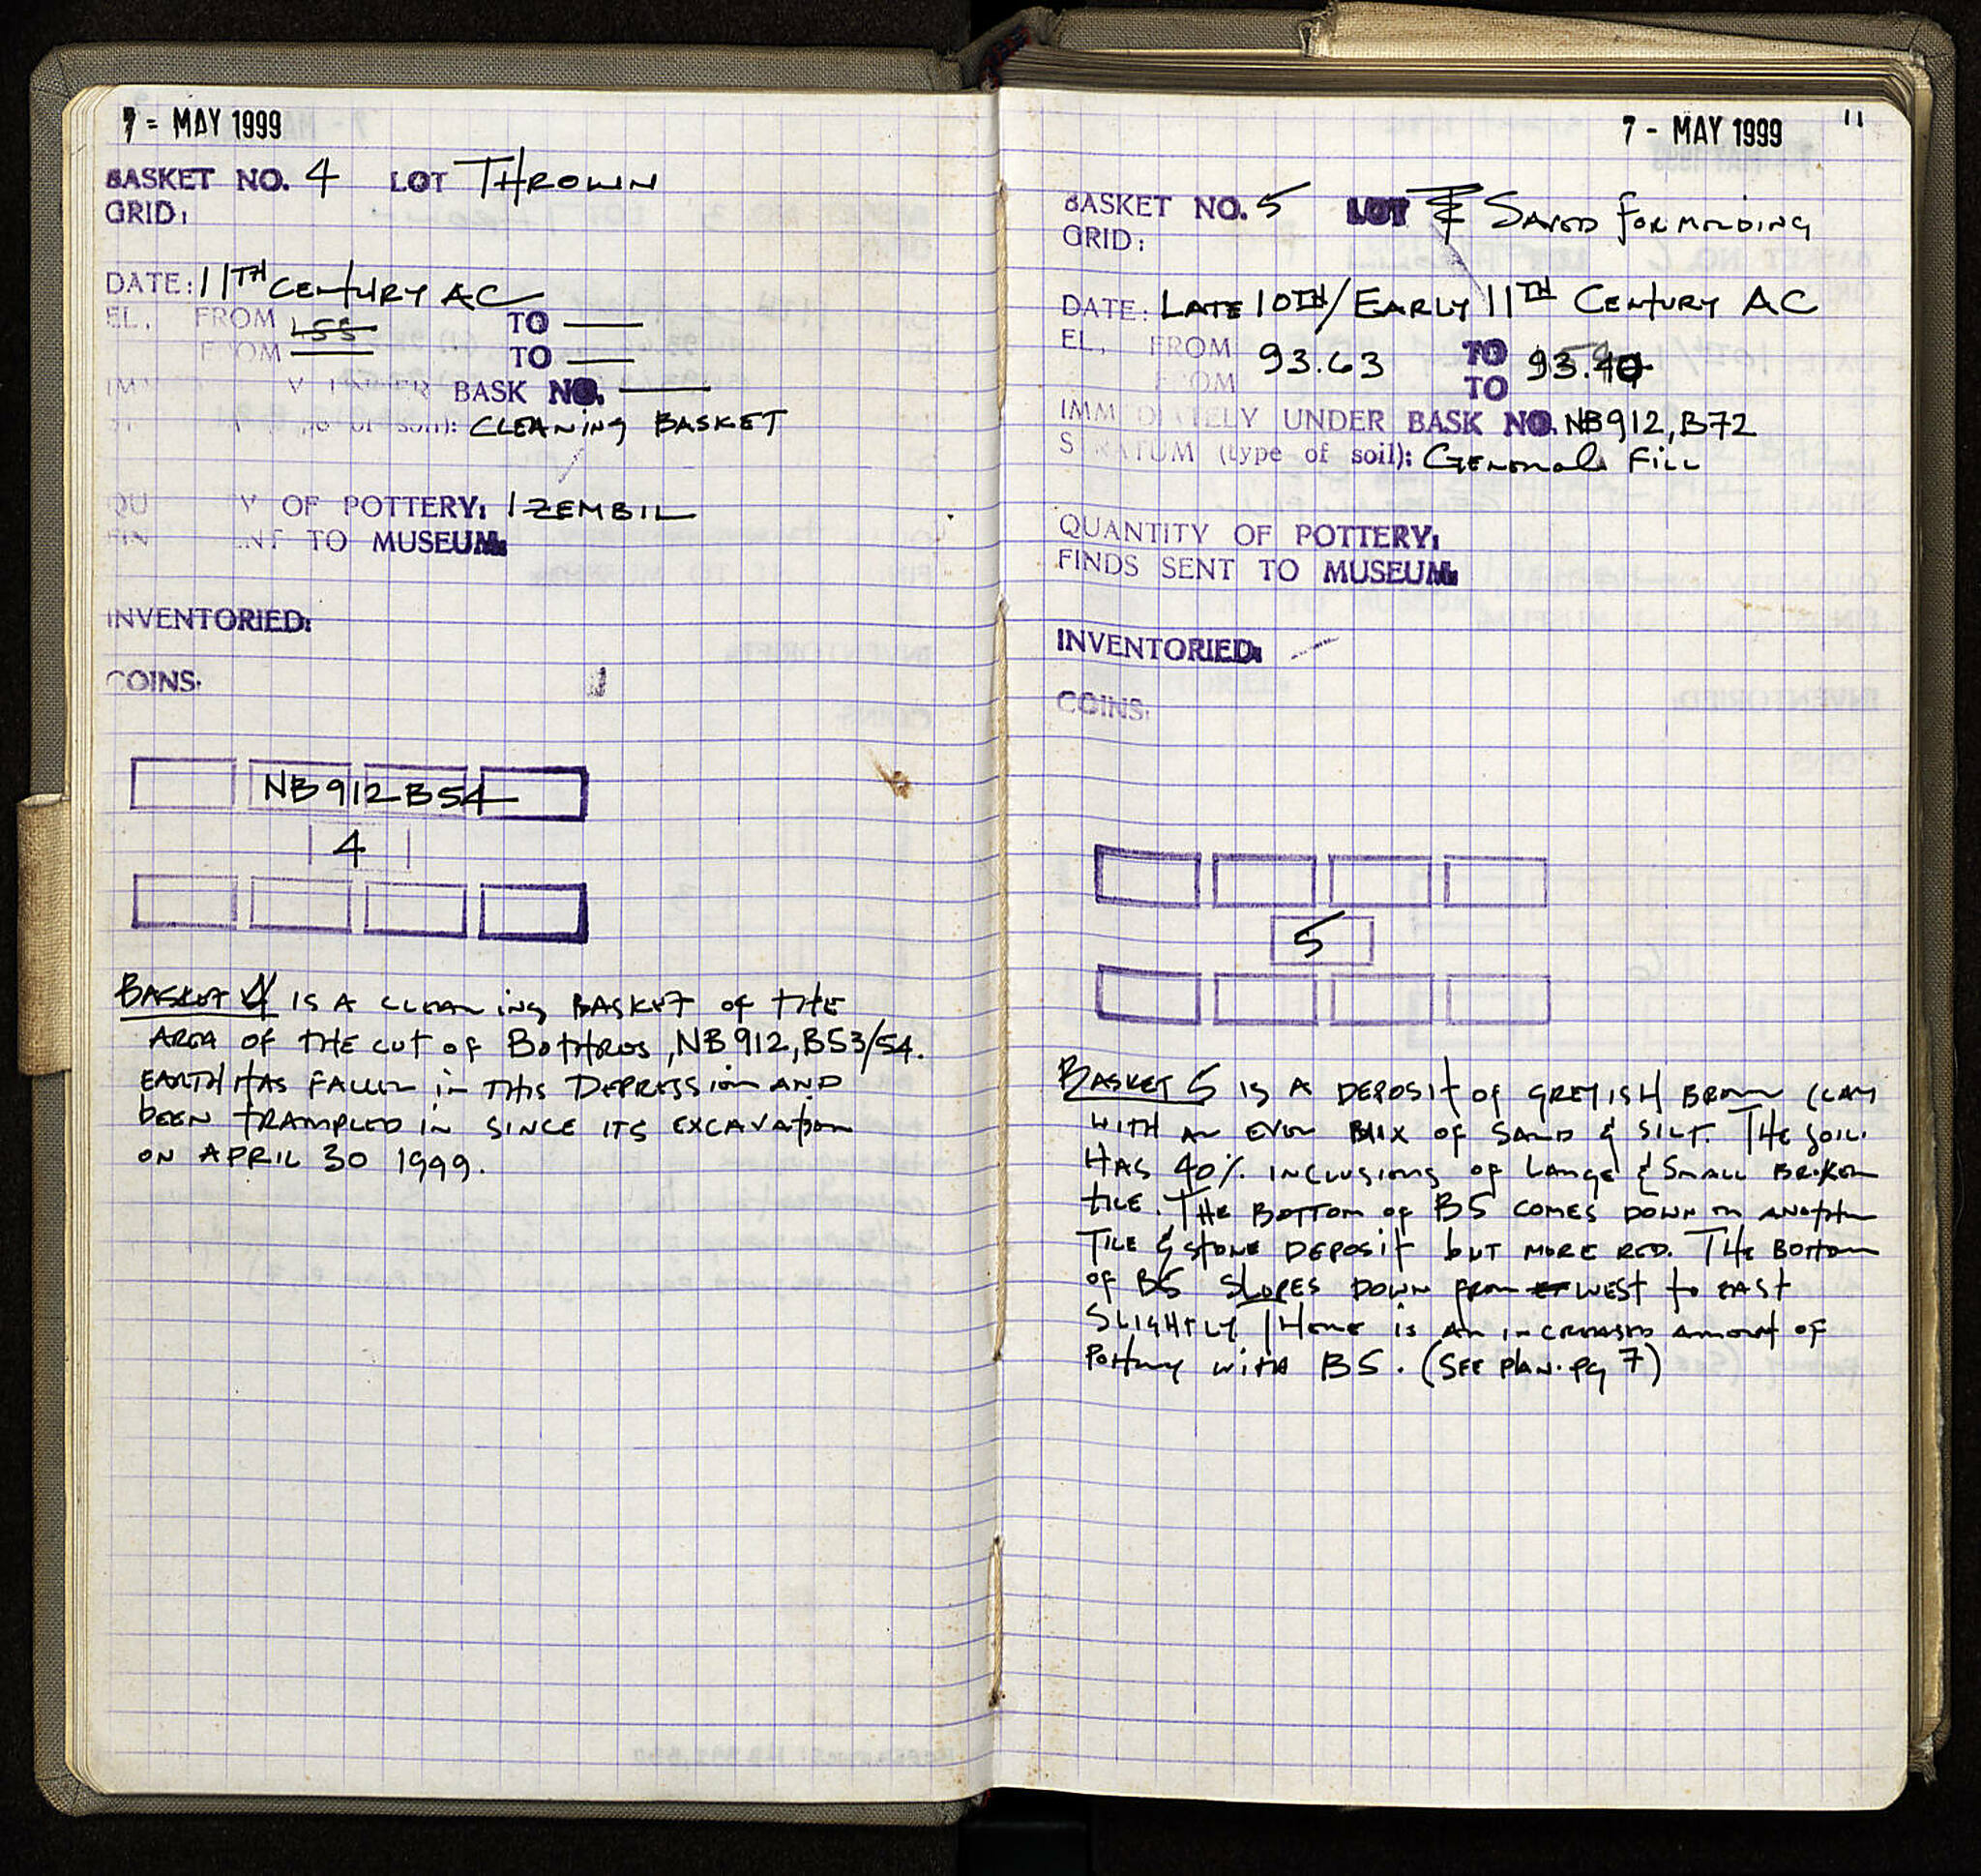 7 - MAY 1999
BASKET NO. 4 LOT THROWN
GRID:
DATE: 11TH CENTURY AC
EL. FROM TO —
FROM — TO —
BASK NO. —
CLEANING BASKET
OF POTTERY: 1 ZEMBIL
TO MUSEUM:
INVENTORIED:
COINS:
NB912 B54
4
BASKET 4 IS A CLEANING BASKET OF THE
AREA OF THE CUT OF BOTHROS, NB912, B53/54.
EARTH HAS FALLEN IN THIS DEPRESSION AND
BEEN TRAMPLED IN SINCE ITS EXCAVATION
ON APRIL 30 1999.
7 - MAY 1999 11
BASKET NO. 5 LOT SAVED FOR MENDING
GRID:
DATE: LATE 10TH/EARLY 11TH CENTURY AC
EL. FROM 93.63 TO
FROM TO
IMMEDIATELY UNDER BASK NO. NB912, B72
STRATUM (type of soil): GENERAL FILL
QUANTITY OF POTTERY:
FINDS SENT TO MUSEUM:
INVENTORIED: —
COINS:
5
BASKET 5 IS A DEPOSIT OF GREYISH BROWN CLAY
WITH AN EVEN MIX OF SAND & SILT. THE SOIL
HAS 40% INCLUSIONS OF LARGE & SMALL BROKEN
TILE. THE BOTTOM OF B5 COMES DOWN ON ANOTHER
TILE & STONE DEPOSIT BUT MORE RED. THE BOTTOM
OF B5 SLOPES DOWN FROM WEST TO EAST
SLIGHTLY. THERE IS AN INCREASED AMOUNT OF
POTTERY WITH B5. (SEE PLAN. PG 7)